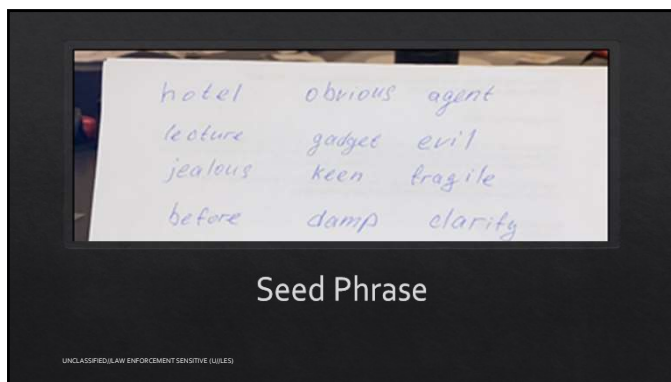 hotel obvious agent
lecture gadget evil
jealous keen fragile
before damp clarify
Seed Phrase
UNCLASSIFIED//LAW ENFORCEMENT SENSITIVE (U//LES)